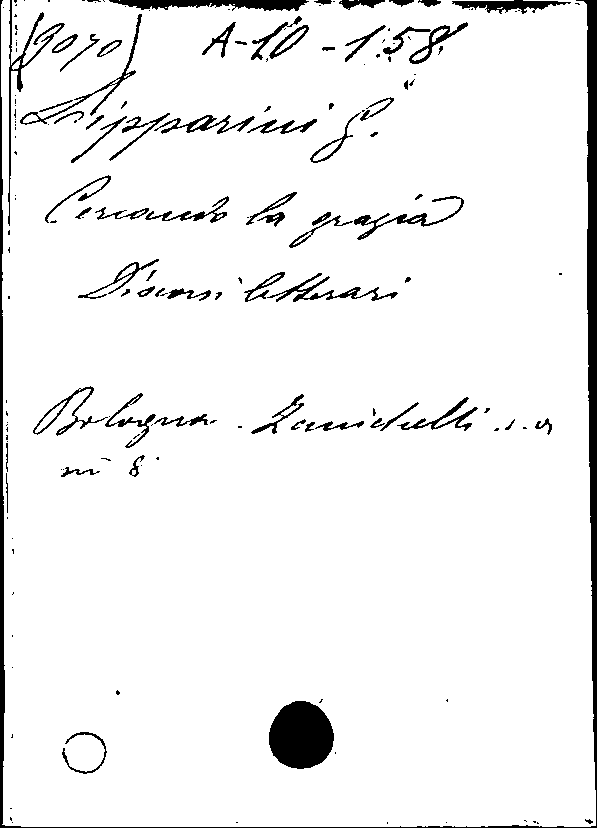 (9070) A-10-158.
Lipparini G.
Cercando la grazia
Discorsi letterari
Bologna - Zanichelli s.a
in 8°